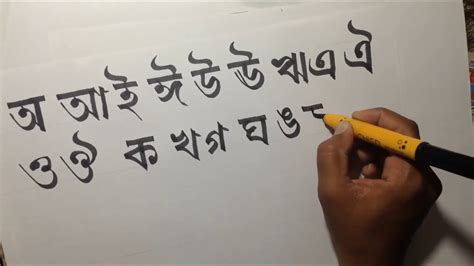 অ আ ই ঈ উ উ ঋ এ ঐ
ও ঔ ক খ গ ঘ ঙ